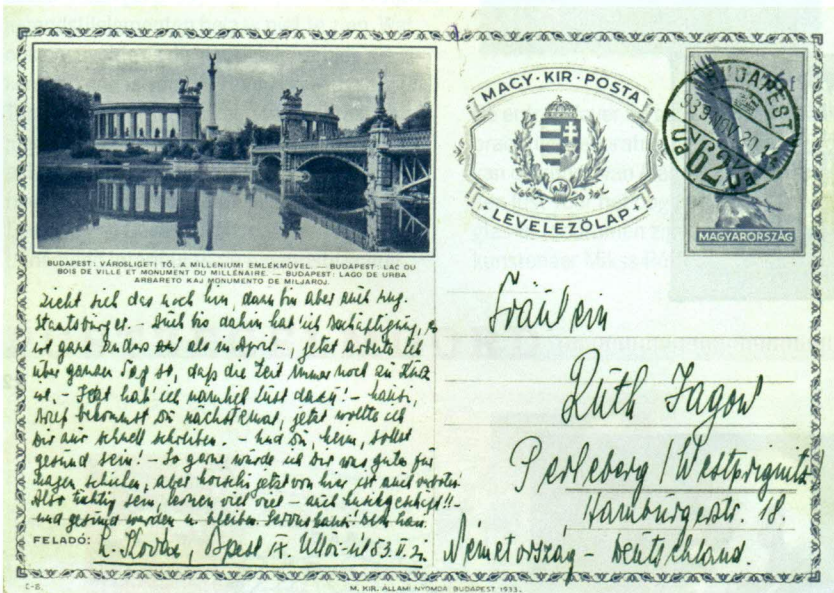 BUDAPEST: VÁROSLIGETI TÓ, A MILLENIUMI EMLÉKMŰVEL. — BUDAPEST: LAC DU
BOIS DE VILLE ET MONUMENT DU MILLÉNAIRE. — BUDAPEST: LAGO DE URBA
ARBARETO KAJ MONUMENTO DE MILJAROJ.
zieht sich das noch hin, dann bin aber auch ung.
Staatsbürger. – Auch bis dahin hab' ich Beschäftigung, es
ist ganz anders als in April –, jetzt arbeite ich
über ganzen Tag so, daß die Zeit immer noch zu kurz
ist. – hab' ich nämlich Lust dazu! –
Brief bekommst Du nächstemal, jetzt wollte ich
Dir nur schnell schreiben. – Und Du, sollst
gesund sein! – So gerne würde ich Dir was gutes für
Magen schicken, aber jetzt von hier ist auch verboten
Also tüchtig sein, lernen viel viel – auch
und gesund werden u. bleiben.
FELADÓ: Bpest IX. Üllői-út 53. II.
MAGY·KIR·POSTA
LEVELEZŐLAP
BUDAPEST
933 NOV 20
62
MAGYARORSZÁG
Fräulein
Ruth Jagow
Perleberg / Westprignitz
Hamburgerstr. 18.
Németország – Deutschland.
C-8.
M. KIR. ÁLLAMI NYOMDA BUDAPEST 1933.